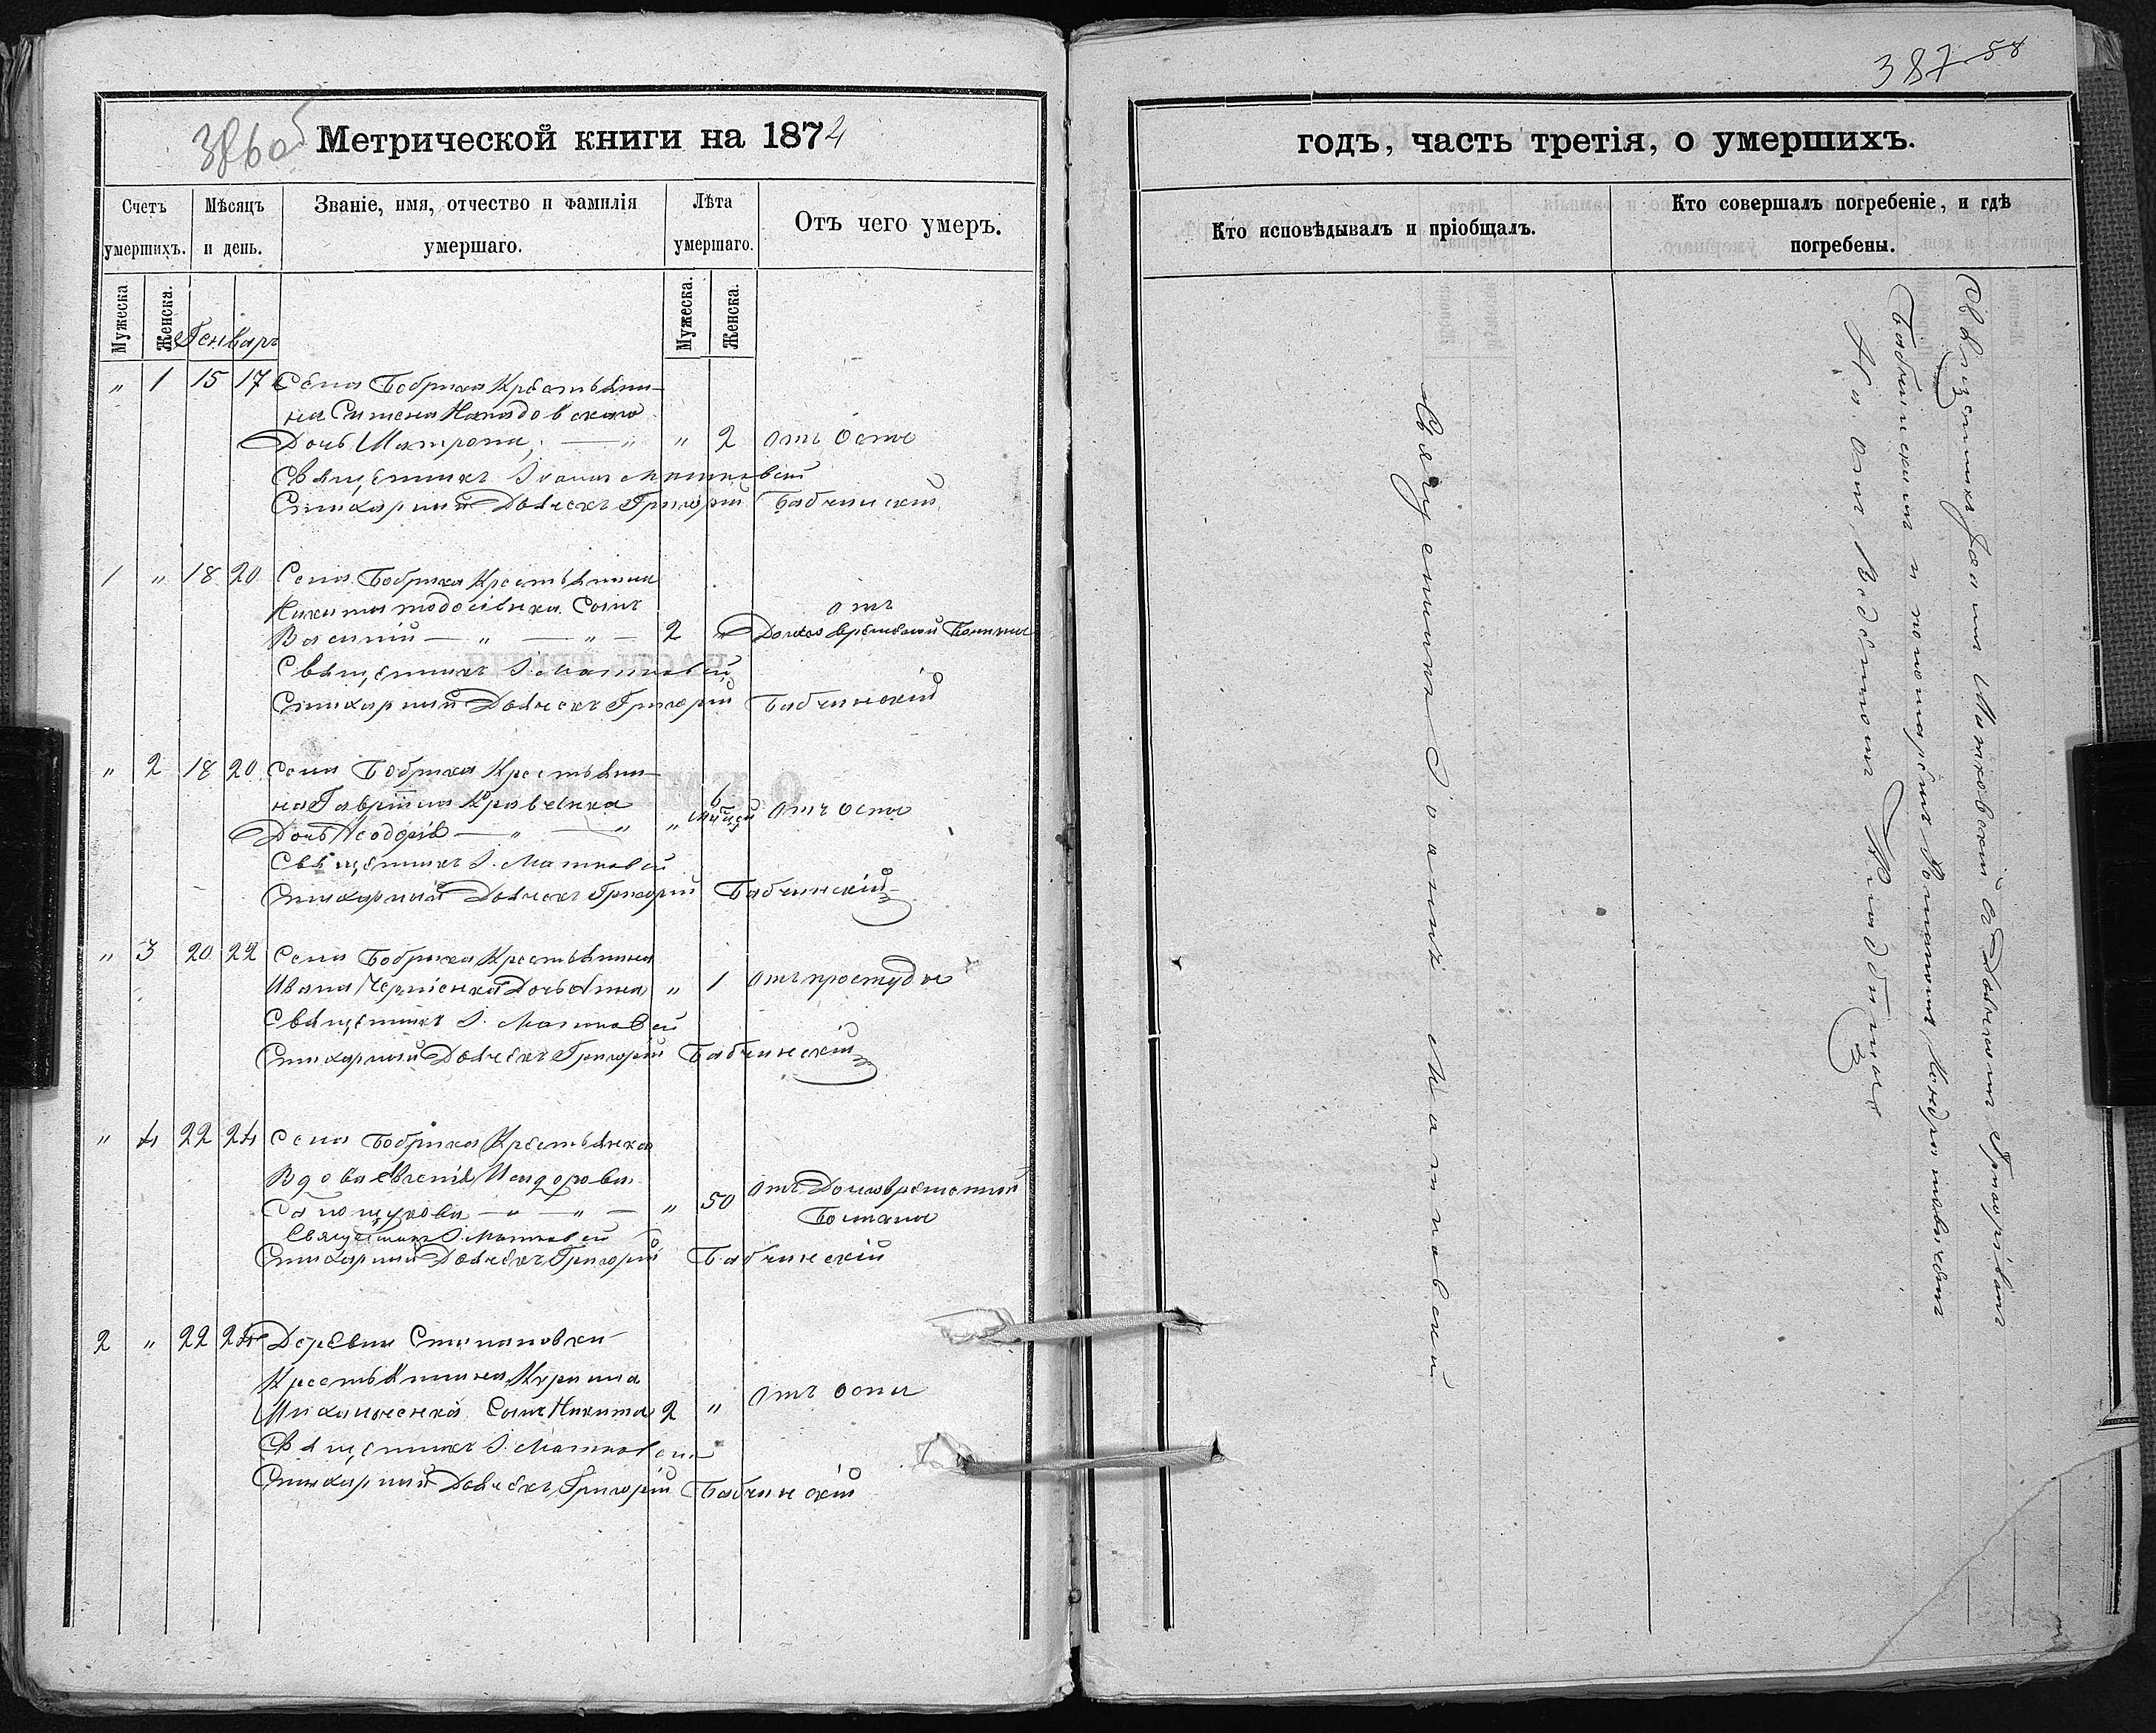 386 об
Метрической книги на 1874
Счетъ умершихъ.
Мѣсяцъ и день.
Званіе, имя, отчество и фамилія умершаго.
Лѣта умершаго.
Отъ чего умеръ.
Мужеска
Женска.
Генварь
Мужеска.
Женска.
„ 1 15 17 Села Бобрика Крестьяни-
на
Дочь Матрона, — „ „ 2 отъ оспы
Священникъ Іоаннъ Матковскій
Стихарный Дьячекъ Григорій Бабчинскій
1 „ 18 20 Села Бобрика Крестьянина
Никиты Сынъ
отъ
Василій — „ — „ — 2 „ Долговременной Болезни
Священникъ І. Матковскій
Стихарный Дьячекъ Григорій Бабчинскій
„ 2 18 20 Села Бобрика Крестьяни-
на Гавріила Кравченка
6
Дочь Ѳеодосія — „ — „ „ отъ оспы
Священникъ І. Матковскій
Стихарный Дьячекъ Григорій Бабчинскій
„ 3 20 22 Села Бобрика Крестьянина
Ивана Дочь Анна „ 1 отъ простуды
Священникъ І. Матковскій
Стихарный Дьячекъ Григорій Бабчинскій
„ 4 22 24 Села Бобрика Крестьянка
Вдова Евгенія
— „ — „ — „ 50 отъ Долговременной
Болезни
Священникъ І. Матковскій
Стихарный Дьячекъ Григорій Бабчинскій
2 „ 22 24 Деревни Степановки
Крестьянина
Сынъ Никита 2 „ отъ оспы
Священникъ І. Матковскій
Стихарный Дьячекъ Григорій Бабчинскій
387 58
годъ, часть третія, о умершихъ.
Кто исповѣдывалъ и пріобщалъ.
Кто совершалъ погребеніе, и гдѣ погребены.
Священникъ Іоаннъ Матковскій
Священникъ Іоаннъ Матковскій съ Дьячкомъ Григоріемъ
Бабчинскимъ и
На Кладбищѣ